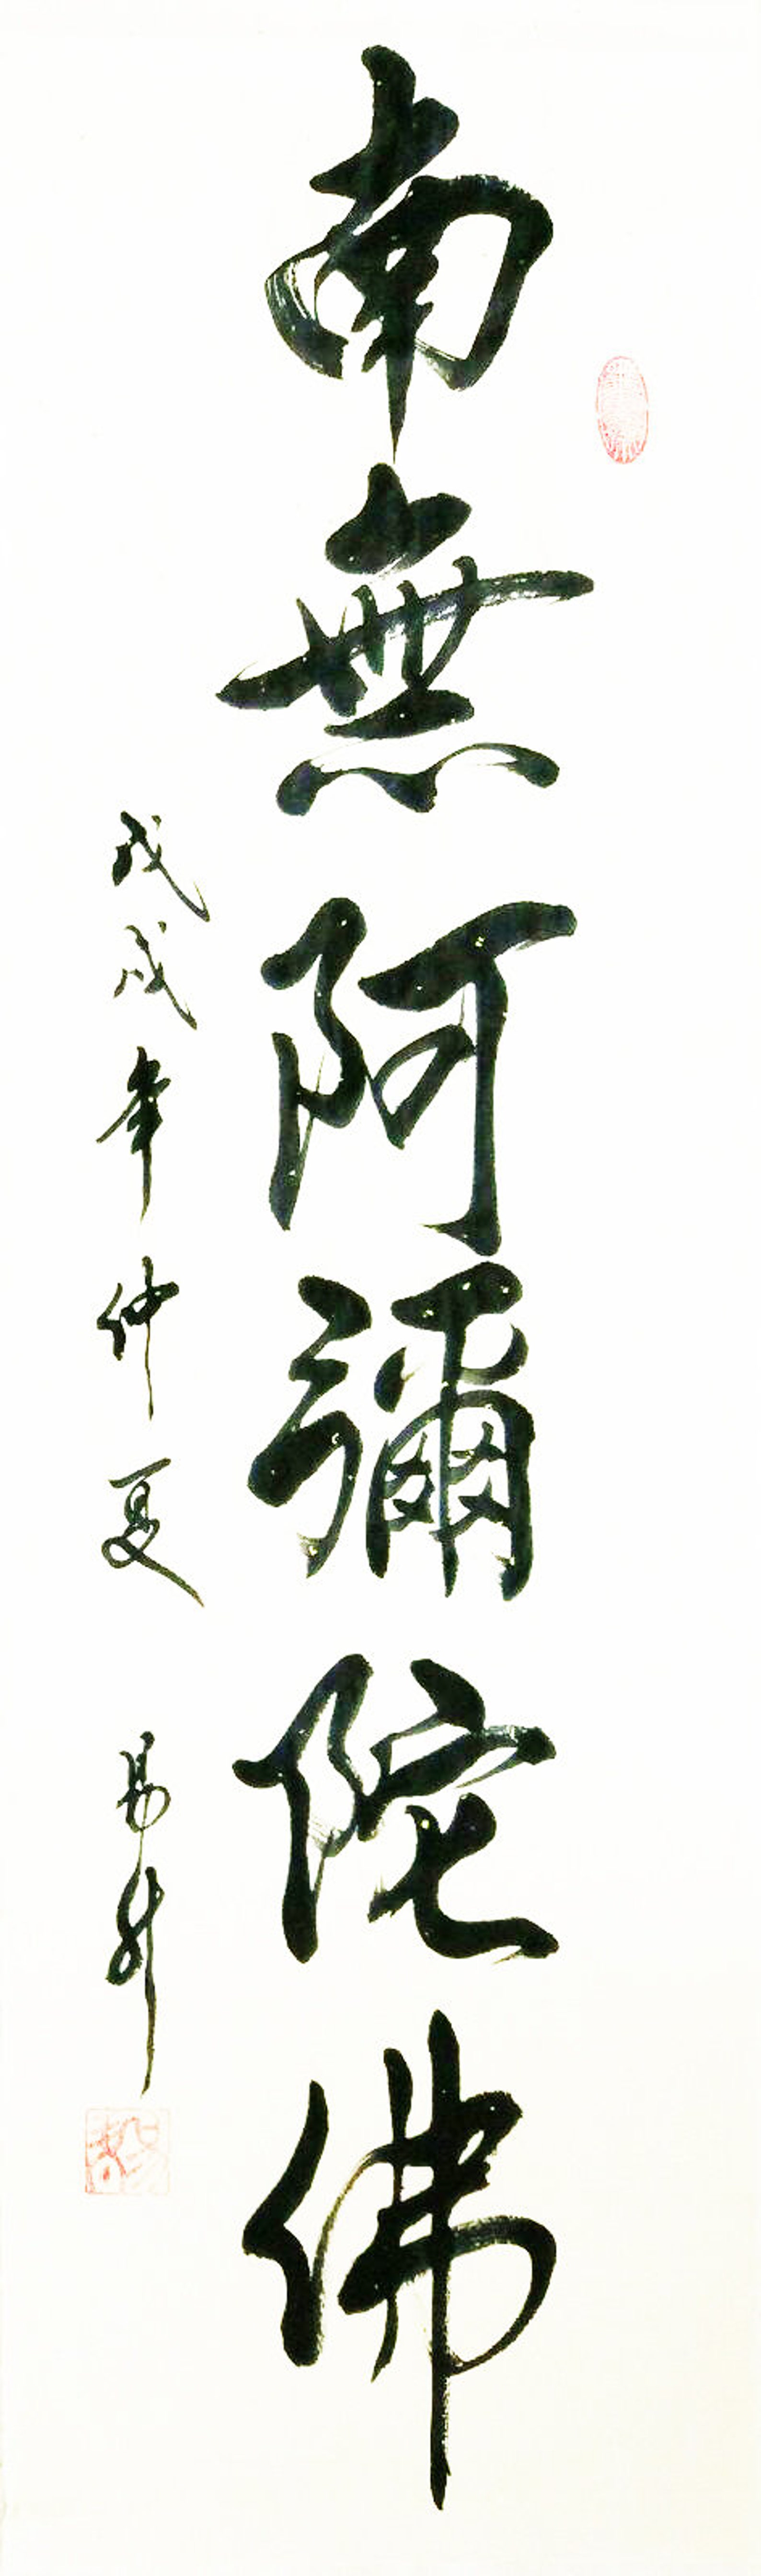 南無阿彌陀佛
戊戌年仲夏 易